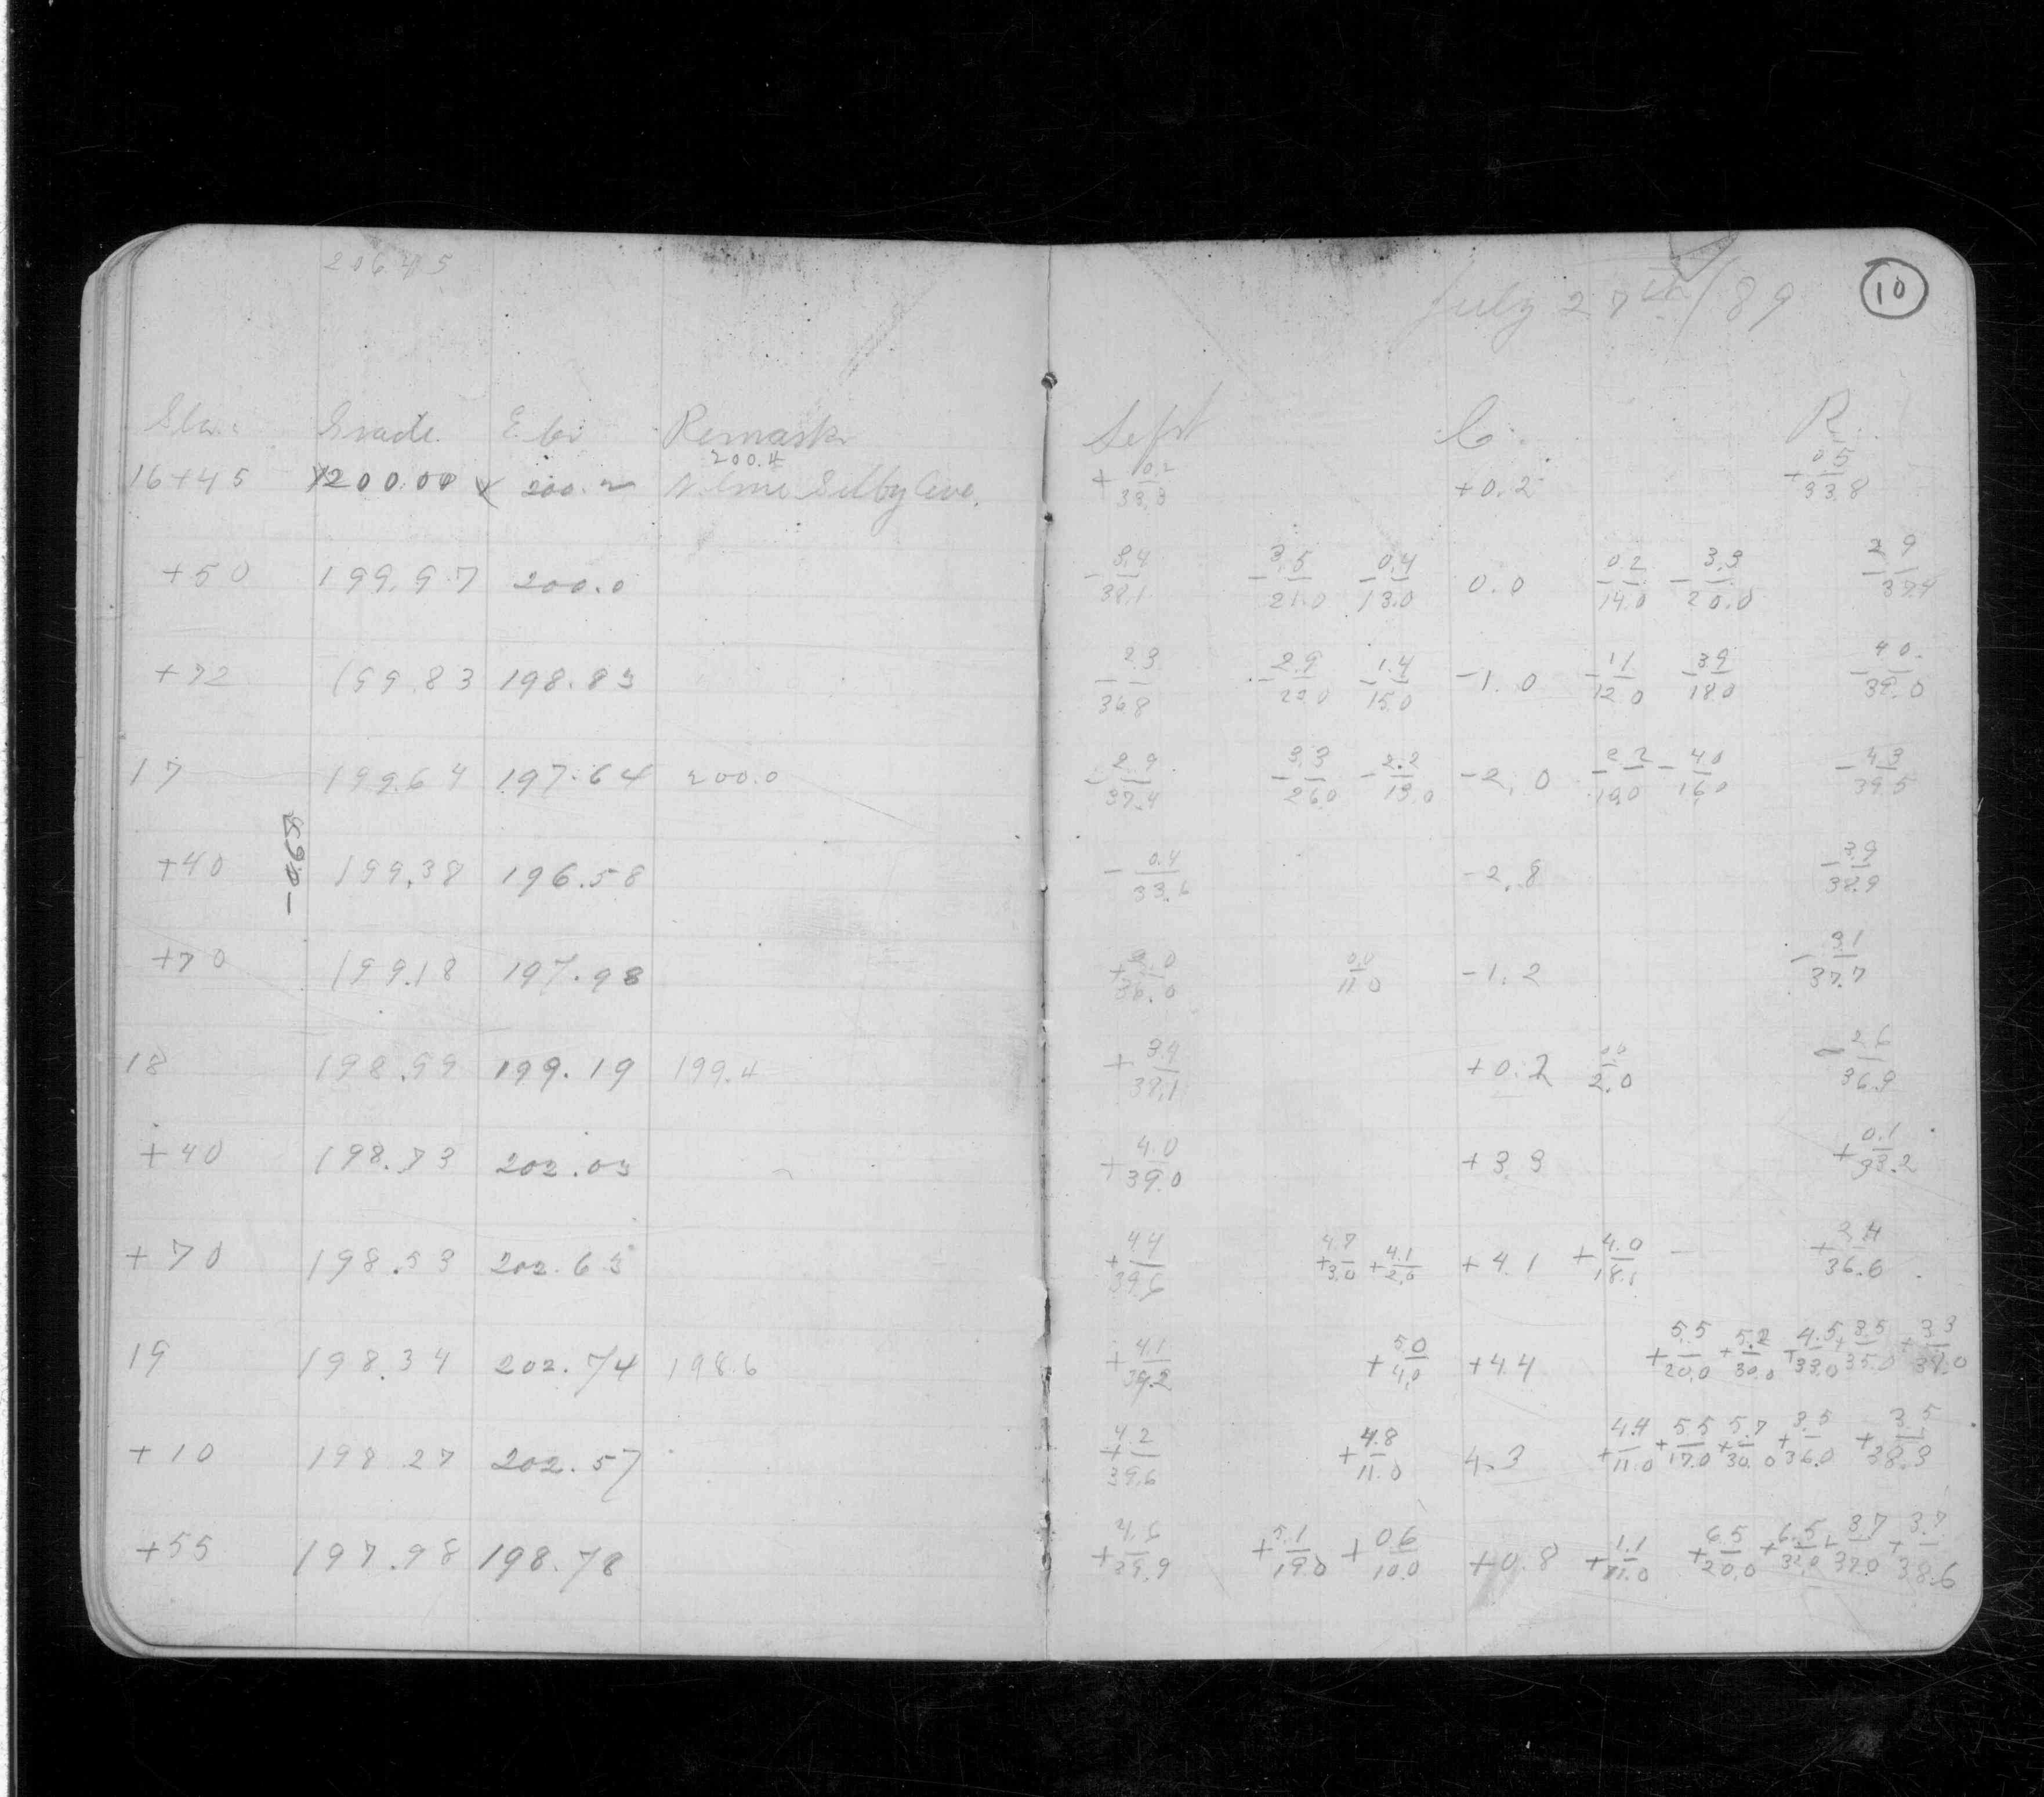 20645
July 27th/89
10
Sta. Grade Elev Remarks Left C. R.
200.4
16+45 200.00 200.2 N line Selby Ave. +0.2/33.8 +0.2 +0.5/33.8
+50 199.97 200.0 -3.4/38.1 -3.5/21.0 -0.4/13.0 0.0 -0.2/14.0 -3.3/20.0 -2.9/37.4
+72 199.83 198.83 -2.3/36.8 -2.9/23.0 -1.4/15.0 -1.0 -1.1/12.0 -3.9/18.0 -4.0/39.0
17 199.64 197.64 200.0 -2.9/37.4 -3.3/26.0 -2.2/13.0 -2.0 -2.2/10.0 -4.0/16.0 -4.3/39.5
-0.65
+40 199.38 196.58 -0.4/33.6 -2.8 -3.9/38.9
+70 199.18 197.98 0.0/11.0 -1.2 -3.1/37.7
18 198.99 199.19 199.4 +3.4/38.1 +0.2 0.0/2.0 -2.6/36.9
+40 198.73 202.03 +4.0/39.0 +3.3 +0.1/33.2
+70 198.53 202.63 +4.4/39.6 +4.7/3.0 +4.1/2.0 +4.1 +4.0/18.0 +2.4/36.6
19 198.34 202.74 198.6 +4.1/39.2 +5.0/4.0 +4.4 +5.5/20.0 +5.2/30.0 +4.5/33.0 +3.5/35.0 +3.3/38.0
+10 198.27 202.57 +4.2/39.6 +4.8/11.0 4.3 +4.4/11.0 +5.5/17.0 +5.7/30.0 +3.5/36.0 +3.5/38.3
+55 197.98 198.78 +4.6/39.9 +5.1/19.0 +0.6/10.0 +0.8 +1.1/11.0 +6.5/20.0 +6.5/32.0 +3.7/37.0 +3.7/38.6